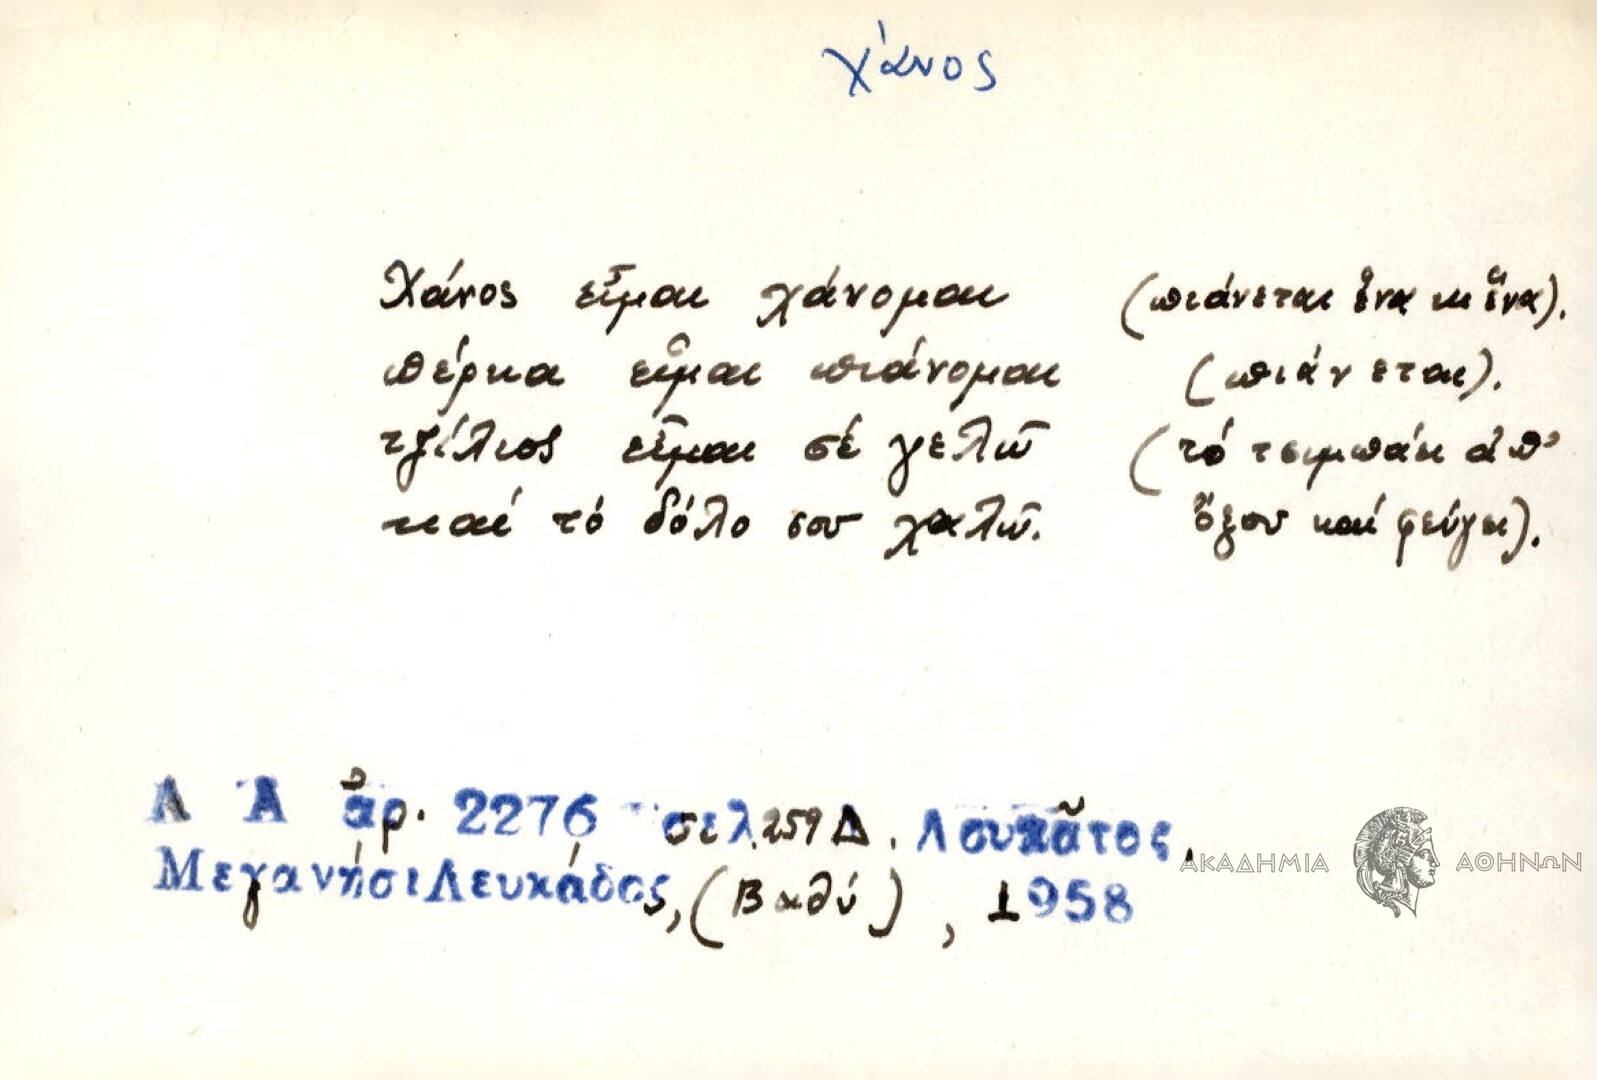 χάνος
Χάνος εἶμαι χάνομαι (πιάνεται ἕνα κι ἕνα).
πέρκα εἶμαι πιάνομαι (πιάνεται).
τζίλιος εἶμαι σέ γελῶ (τό τσιμπάει ἀπ'
καί τό δόλο σου χαλῶ. ὄξου καί φεύγει).
Λ Α ἀρ. 2276 σελ. 259 Δ. Λουκᾶτος,
Μεγανήσι Λευκάδος, (Βαθύ), 1958
ΑΚΑΔΗΜΙΑ ΑΘΗΝΩΝ